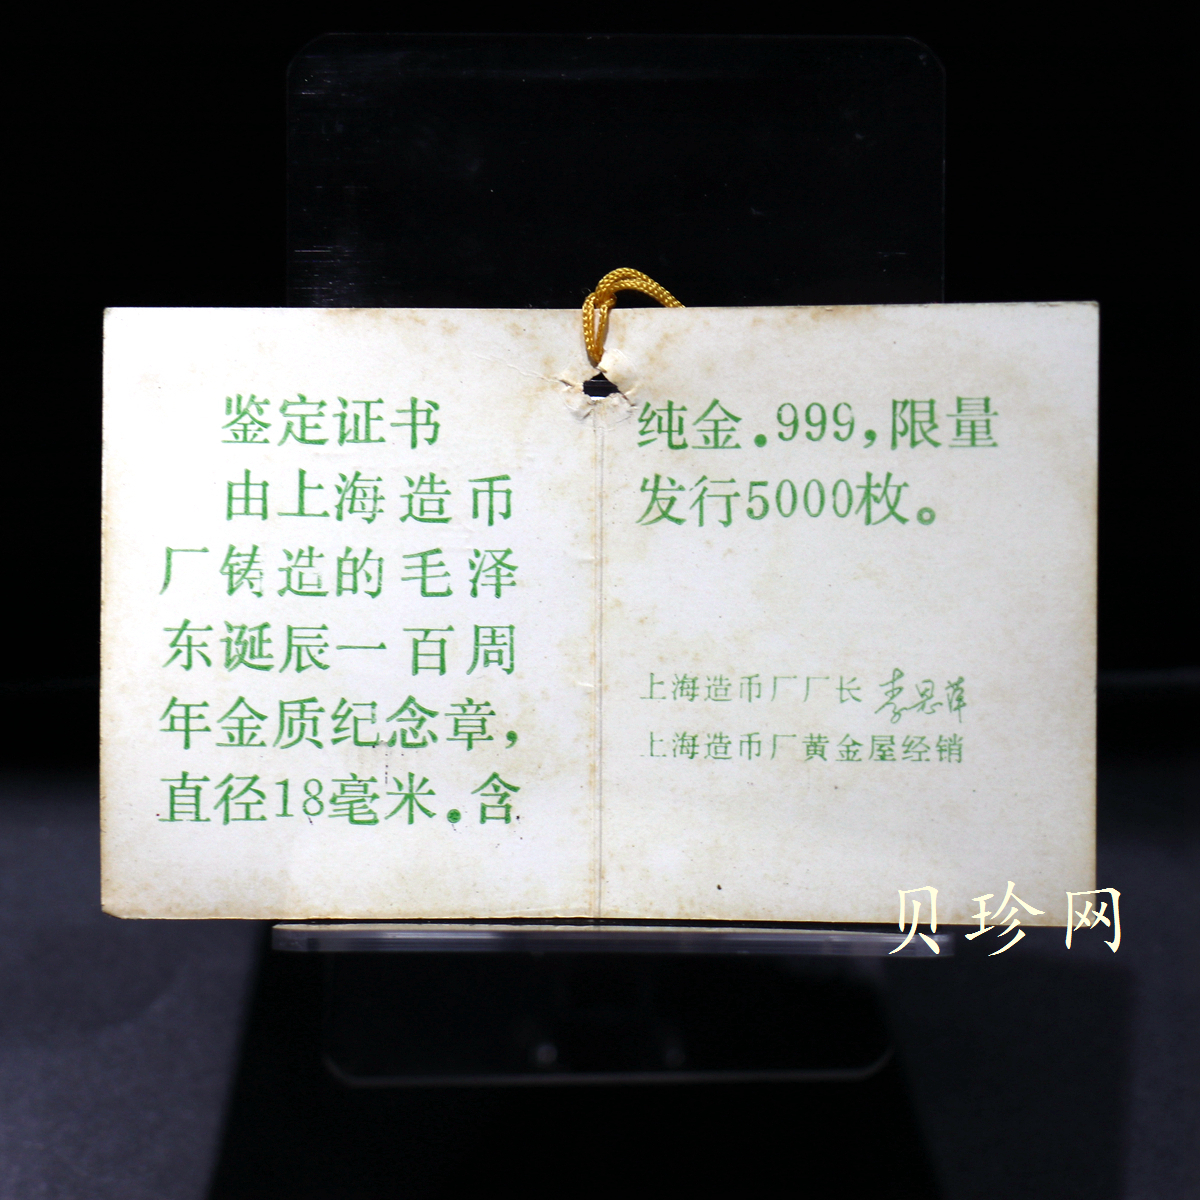 鉴定证书
由上海造币
厂铸造的毛泽
东诞辰一百周
年金质纪念章,
直径18毫米.含
纯金.999,限量
发行5000枚。
上海造币厂厂长
上海造币厂黄金屋经销
贝珍网